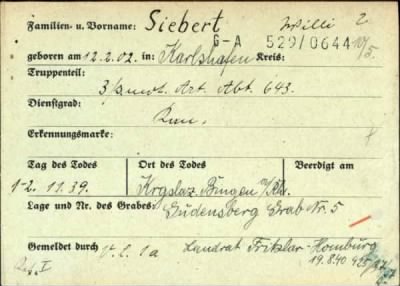 Familien- u. Vorname: Siebert Willi 2
6-A 529/0644
geboren am 12.2.02. in: Karlshafen Kreis:
Truppenteil:
3/ Art. Abt. 643.
Dienstgrad:
Erkennungsmarke:
Tag des Todes Ort des Todes Beerdigt am
1-2. 11.39. Krgslaz. Bingen a/Rh.
Lage und Nr. des Grabes: Gudensberg Grab Nr. 5
Gemeldet durch V.L. 1a Landrat Fritzlar-Homburg
19.8.40
Ref. I